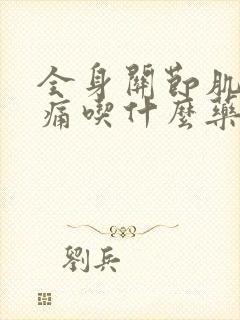 全身關節肌
痛喫什麽藥
劉兵